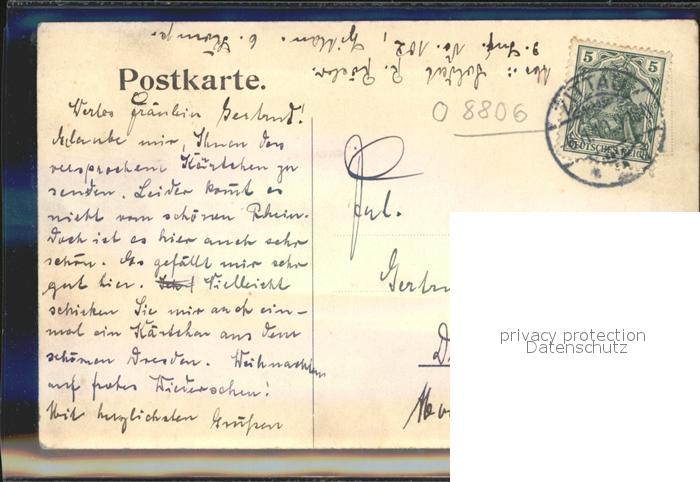 Abs.: Soldat R.
3. Inf. No. 102, Zittau. 6. Komp.
Postkarte.
O 8806
5 5
ZITTAU
DEUTSCHES REICH
Wertes Fräulein Gertrud!
Erlaube mir, Ihnen das
versprochene Kärtchen zu
senden. Leider kommt es
nicht vom schönen Rhein.
Doch ist es hier auch sehr
schön. Es gefällt mir sehr
gut hier. Vielleicht
schicken Sie mir auch ein-
mal ein Kärtchen aus dem
schönen Dresden. Weihnachten
auf frohes Wiedersehen!
Mit herzlichsten Grüßen
Frl.
Gertru
D
privacy protection
Datenschutz